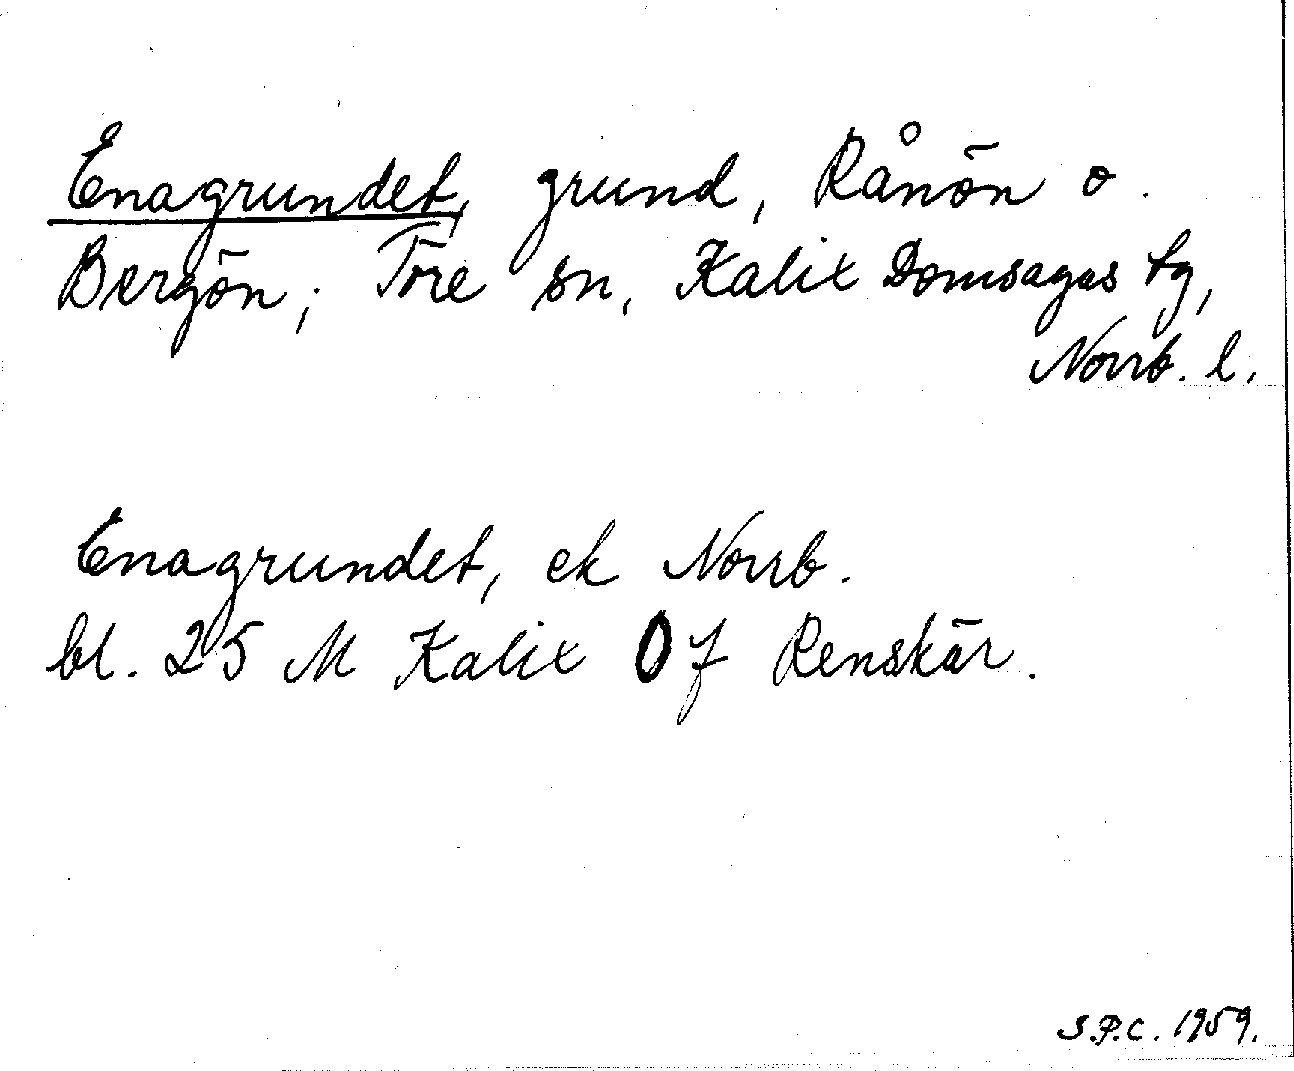 Enagrundet, grund, Rånön o.
Bergön; Töre sn, Kalix Domsagas tg,
Norrb. l.
Enagrundet, ek Norrb.
bl. 25 M Kalix Of Renskär.
S.P.C. 1959.